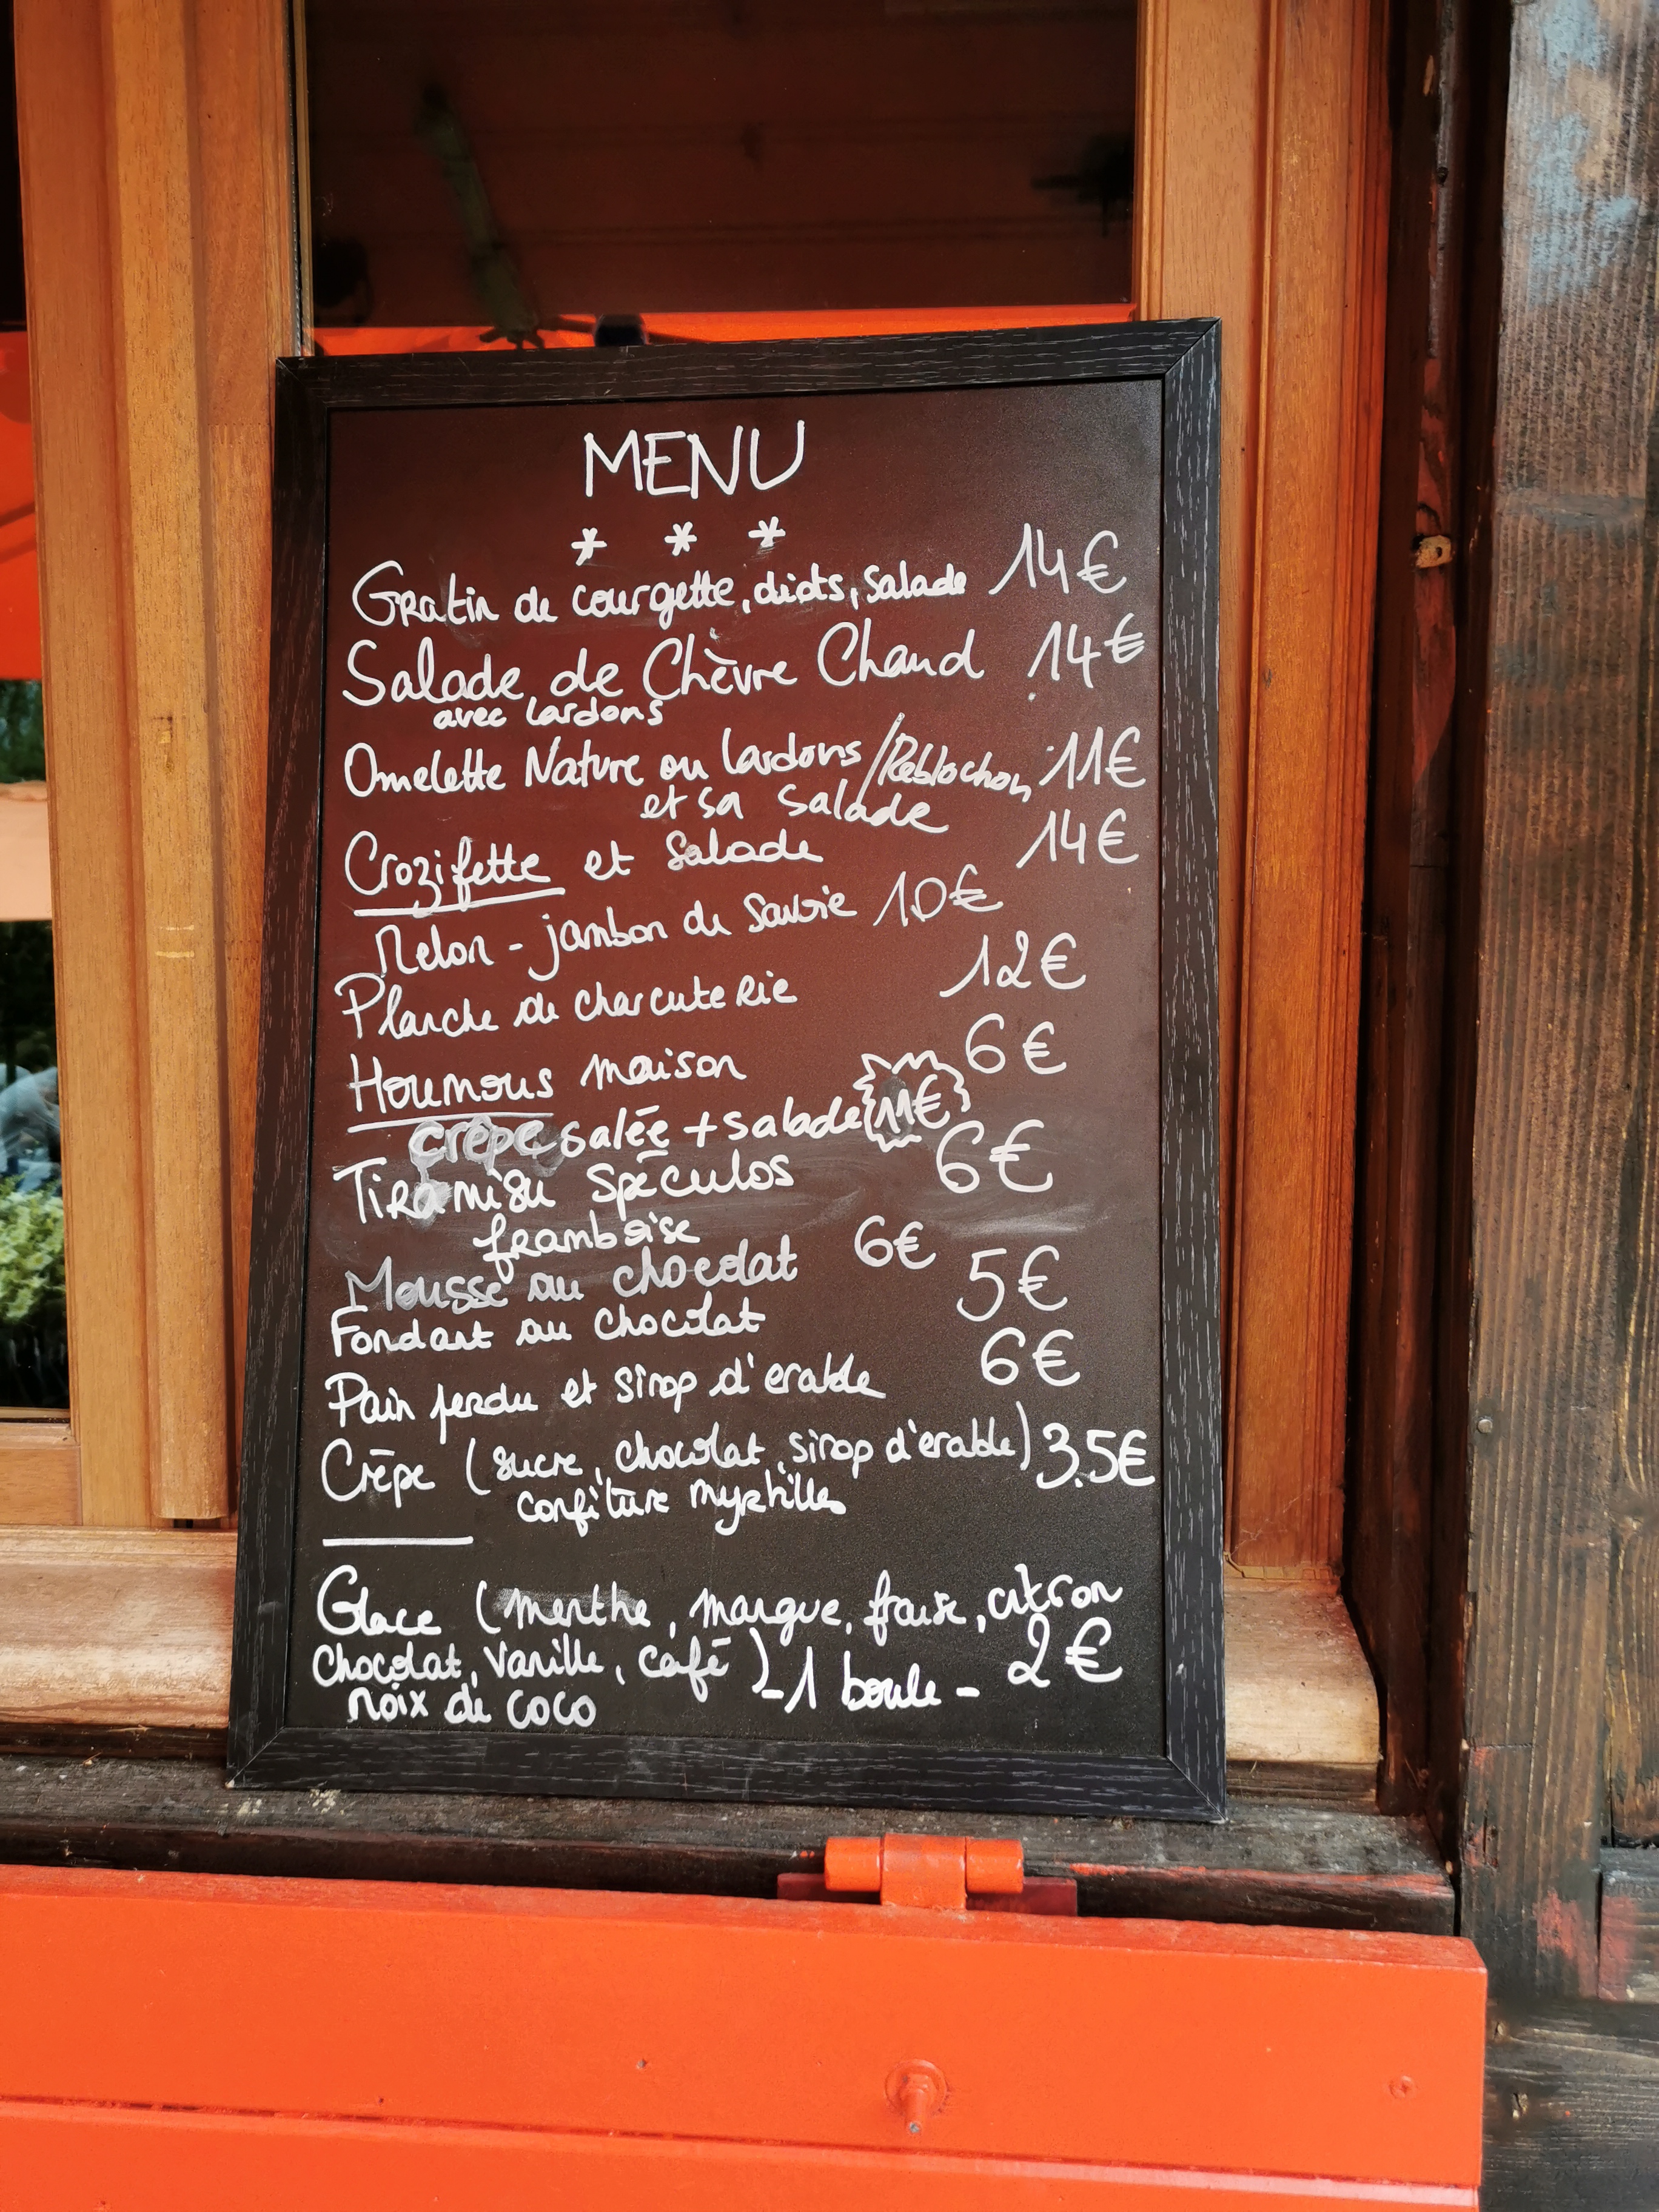 MENU
* * *
Gratin de courgette, diots, salade 14€
Salade de Chèvre Chaud 14€
avec lardons
Omelette Nature ou lardons/Reblochon 11€
et sa salade
Crozifette et salade 14€
Melon - jambon de Savoie 10€
Planche de charcuterie 12€
Houmous maison 6€
crêpe salée + salade 11€
Tiramisu Spéculos 6€
framboise
Mousse au chocolat 6€
Fondant au chocolat 5€
Pain perdu et sirop d'erable 6€
Crêpe (sucre, chocolat, sirop d'erable) 3.5€
confiture myrtilles
Glace (menthe, mangue, fraise, citron
chocolat, vanille, café) - 1 boule - 2€
noix de coco